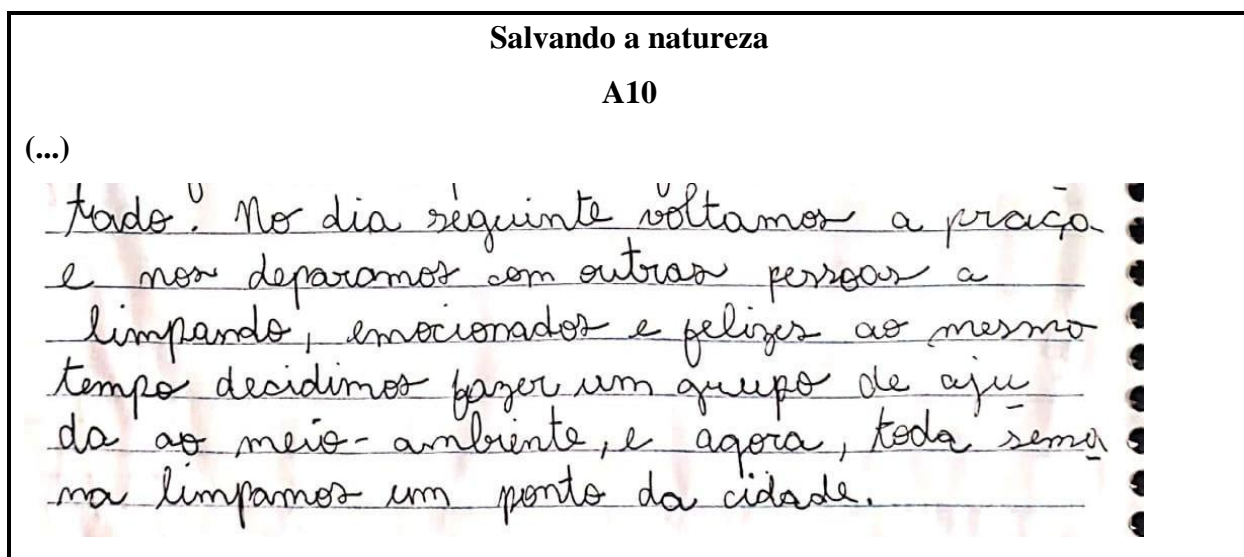 Salvando a natureza
A10
(...)
trado. No dia seguinte voltamos a praça
e nos deparamos com outras pessoas a
limpando, emocionados e felizes ao mesmo
tempo decidimos fazer um grupo de aju
da ao meio-ambiente, e agora, toda sema
na limpamos um ponto da cidade.